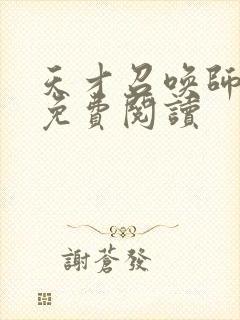 天才召喚師
免費閱讀
謝蒼發